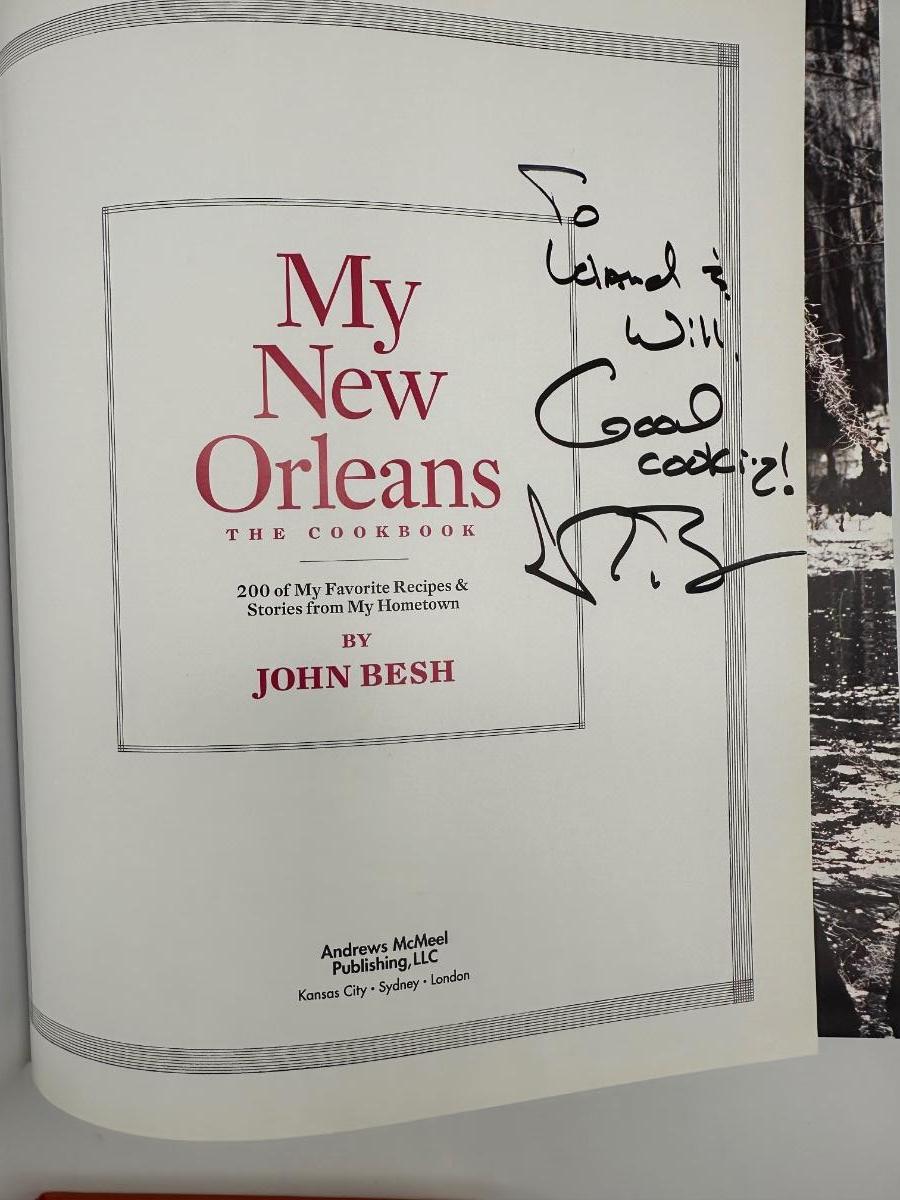 My
New
Orleans
THE COOKBOOK
200 of My Favorite Recipes &
Stories from My Hometown
BY
JOHN BESH
Andrews McMeel
Publishing, LLC
Kansas City • Sydney • London
To
&
Will
Good
cooking!